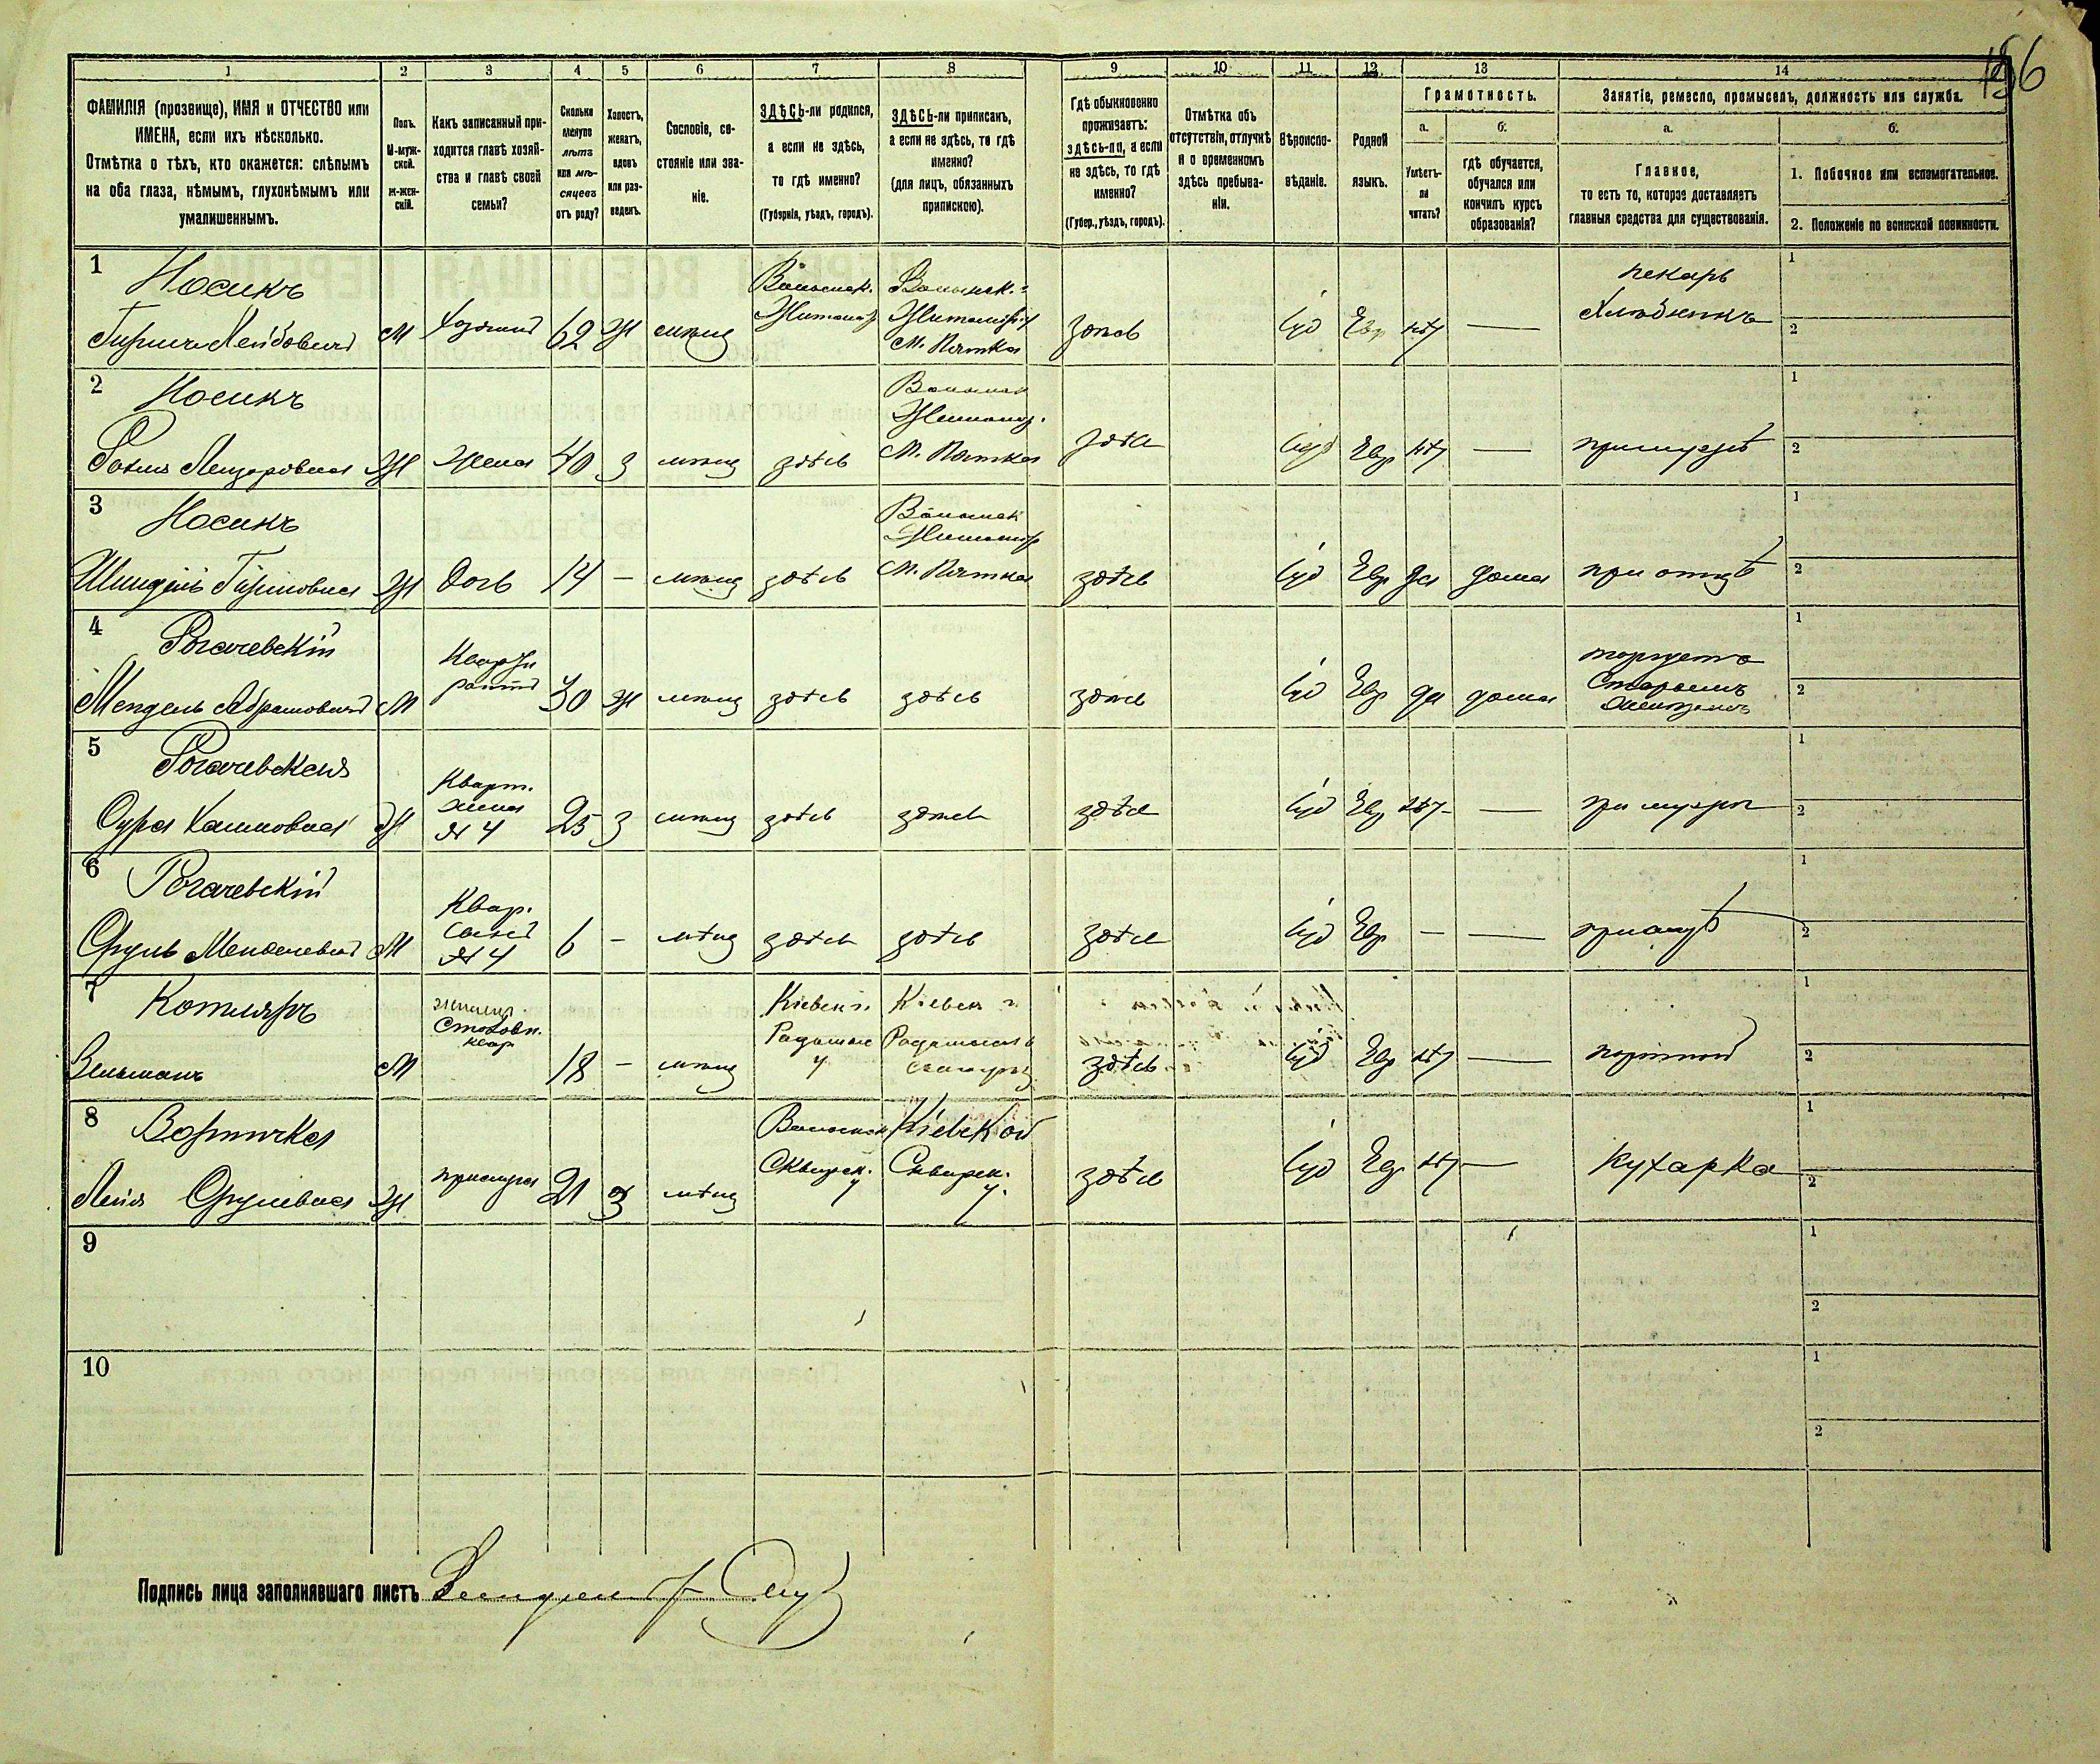 156
1 2 3 4 5 6 7 8 9 10 11 12 13 14
ФАМИЛІЯ (прозвище), ИМЯ и ОТЧЕСТВО или
ИМЕНА, если ихъ нѣсколько.
Отмѣтка о тѣхъ, кто окажется: слѣпымъ
на оба глаза, нѣмымъ, глухонѣмымъ или
умалишеннымъ.
Полъ.
М-муж-
ской.
Ж-жен-
скій.
Какъ записанный при-
ходится главѣ хозяй-
ства и главѣ своей
семьи?
Сколько
минуло
лѣтъ
или мѣ-
сяцевъ
отъ роду?
Холостъ,
женатъ,
вдовъ
или раз-
веденъ.
Сословіе, со-
стояніе или зва-
ніе.
ЗДѢСЬ-ли родился,
а если не здѣсь,
то гдѣ именно?
(Губернія, уѣздъ, городъ).
ЗДѢСЬ-ли приписанъ,
а если не здѣсь, то гдѣ
именно?
(для лицъ, обязанныхъ
припискою).
Гдѣ обыкновенно
проживаетъ:
здѣсь-ли, а если
не здѣсь, то гдѣ
именно?
(Губер., уѣздъ, городъ).
Отмѣтка объ
отсутствіи, отлучкѣ
и о временномъ
здѣсь пребыва-
ніи.
Вѣроиспо-
вѣданіе.
Родной
языкъ.
Грамотность.
а.
Умѣетъ-
ли
читать?
б.
гдѣ обучается,
обучался или
кончилъ курсъ
образованія?
Занятіе, ремесло, промыселъ, должность или служба.
а.
Главное,
то есть то, которое доставляетъ
главныя средства для существованія.
б.
1. Побочное или вспомогательное.
2. Положеніе по воинской повинности.
1 Носикъ
Гиршъ Лейбовичъ М хозяинъ 62 Ж мѣщ
Волынск.
Житомір
Волынск. г
Житомірск
м. Пятка
здѣсь Іуд Евр нѣт —
пекарь
Хлѣбникъ
1
2
2 Носикъ
Лейзоровна Ж жена 40 З мѣщ здѣсь
Волынск
Житомір.
м. Пятка
здѣсь Іуд Евр нѣт — при мужѣ
1
2
3 Носикъ
Шиндель Гиршовна Ж дочь 14 — мѣщ здѣсь
Волынск
Житомір
м. Пятка
здѣсь Іуд Евр да дома при отцѣ
1
2
4 Рогачевскій
Мендель Абрамовичъ М
Кварти
рантъ
30 Ж мѣщ здѣсь здѣсь здѣсь Іуд Евр да дома
торгуетъ
Старымъ
желѣзомъ
1
2
5 Рогачевская
Сура Хаимовна Ж
Кварт.
жена
№ 4
25 З мѣщ здѣсь здѣсь здѣсь Іуд Евр нѣт — при мужѣ
1
2
6 Рогачевскій
Сруль Менделевичъ М
Квар.
сынъ
№ 4
6 — мѣщ здѣсь здѣсь здѣсь Іуд Евр — — при отцѣ
1
2
7 Котляръ
Зельманъ М
Столовн.
квар
18 — мѣщ
Кіевск г.
Радомысл
у
Кіевск г.
Радомысльск
здѣсь Іуд Евр нѣт — портной
1
2
8
Лейя Срулевна Ж прислуга 21 З мѣщ
Волынск
Сквирск.
у
Кіевской
Сквирск.
у.
здѣсь Іуд Евр нѣт — Кухарка
1
2
9
1
2
10
1
2
Подпись лица заполнявшаго листъ